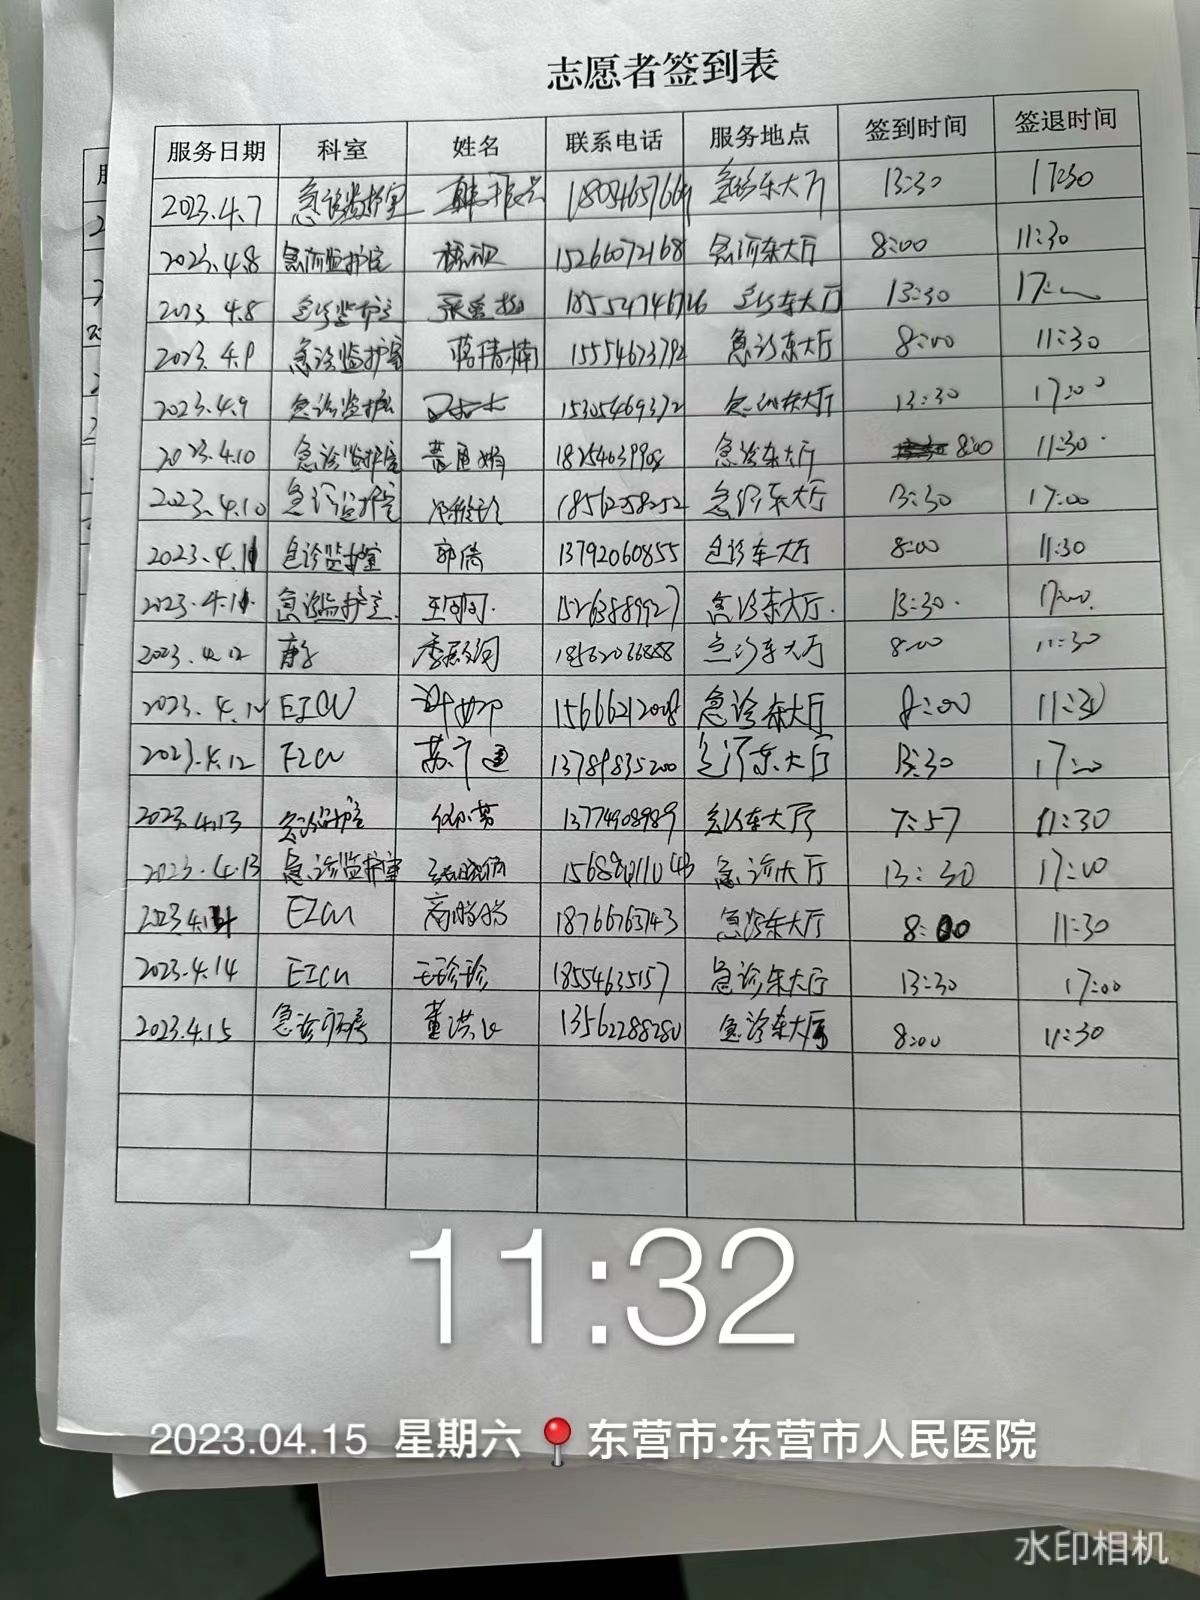 志愿者签到表
服务日期 科室 姓名 联系电话 服务地点 签到时间 签退时间
2023.4.7 急诊监护室 急诊东大厅 13:30 17:30
2023.4.8 急诊监护室 15266072168 急诊东大厅 8:00 11:30
2023.4.8 急诊监护室 急诊东大厅 13:30
2023.4.9 急诊监护室 蒋倩楠 15554673792 急诊东大厅 8:00 11:30
2023.4.9 急诊监护室 15305469372 急诊东大厅 13:30 17:00
2023.4.10 急诊监护室 18254639908 急诊东大厅 8:00 11:30
2023.4.10 急诊监护室 18562358252 急诊东大厅 13:30 17:00
2023.4.11 急诊监护室 郭倩 13792060855 急诊东大厅 8:00 11:30
2023.4.11. 急诊监护室. 王珂珂. 15263889927 急诊东大厅. 13:30. 17:00.
2023.4.12 急诊东大厅 8:00 11:30
2023.4.12 EICU 15666212008 急诊东大厅 8:00 11:30
2023.4.12 EICU 13789835200 急诊东大厅 13:30 17:00
2023.4.13 急诊监护室 13774908989 急诊东大厅 7:57 11:30
2023.4.13 急诊监护室 急诊大厅 13:30 17:00
2023.4.14 EICU 18766763743 急诊东大厅 8:00 11:30
2023.4.14 EICU 王珍珍 18554635157 急诊东大厅 13:30 17:00
2023.4.15 急诊 董洪 13562288280 急诊东大厅 8:00 11:30
11:32
2023.04.15 星期六 东营市·东营市人民医院
水印相机